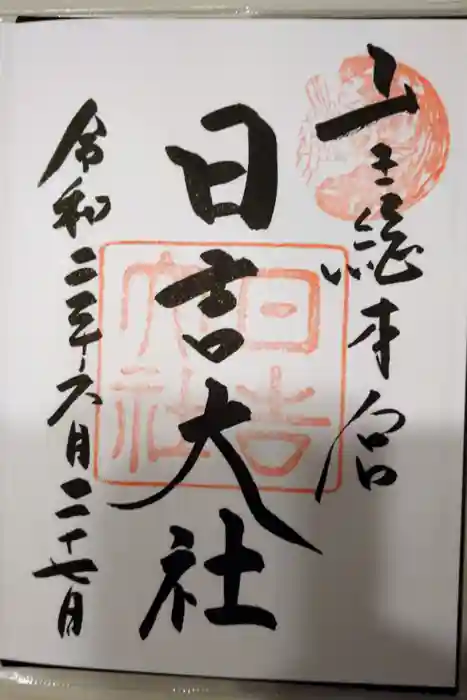 山王総本宮
日吉大社
令和二年六月二十七日
日吉
大社